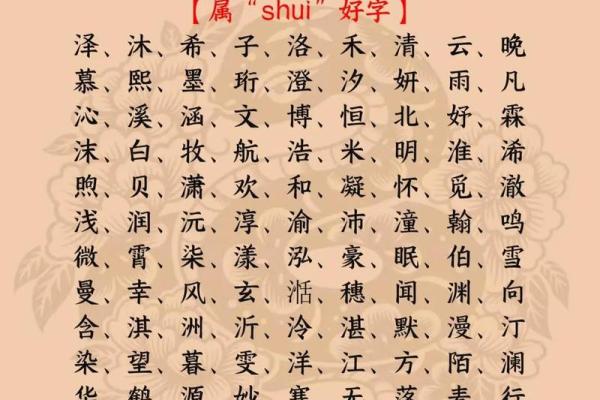 【属“shui”好字】
泽、沐、希、子、洛、禾、清、云、晚
慕、熙、墨、珩、澄、汐、妍、雨、凡
沁、溪、涵、文、博、恒、北、好、霖
沫、白、牧、航、浩、米、明、淮、浠
煦、贝、潇、欢、和、凝、怀、觅、澈
浅、润、沅、淳、渝、沛、潼、翰、鸣
微、霄、柒、漾、泓、豪、眠、伯、雪
曼、幸、风、玄、湉、穗、闻、渊、向
含、淇、洲、沂、泠、湛、默、漫、汀
染、望、暮、雯、洋、江、方、陌、澜
华、鹤、源、妙、寒、无、落、麦、行